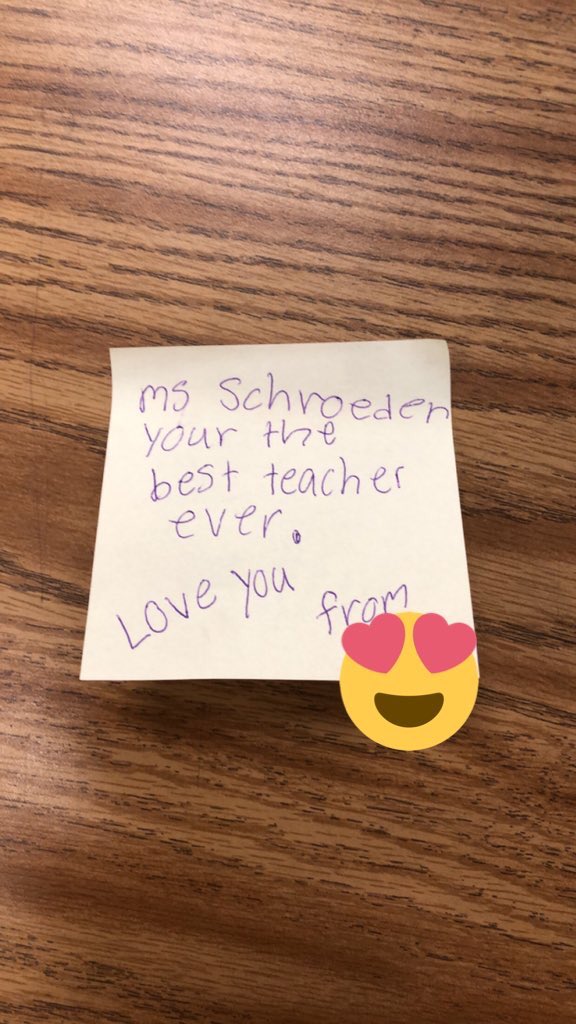 ms Schroeder
your the
best teacher
ever.
Love you
from